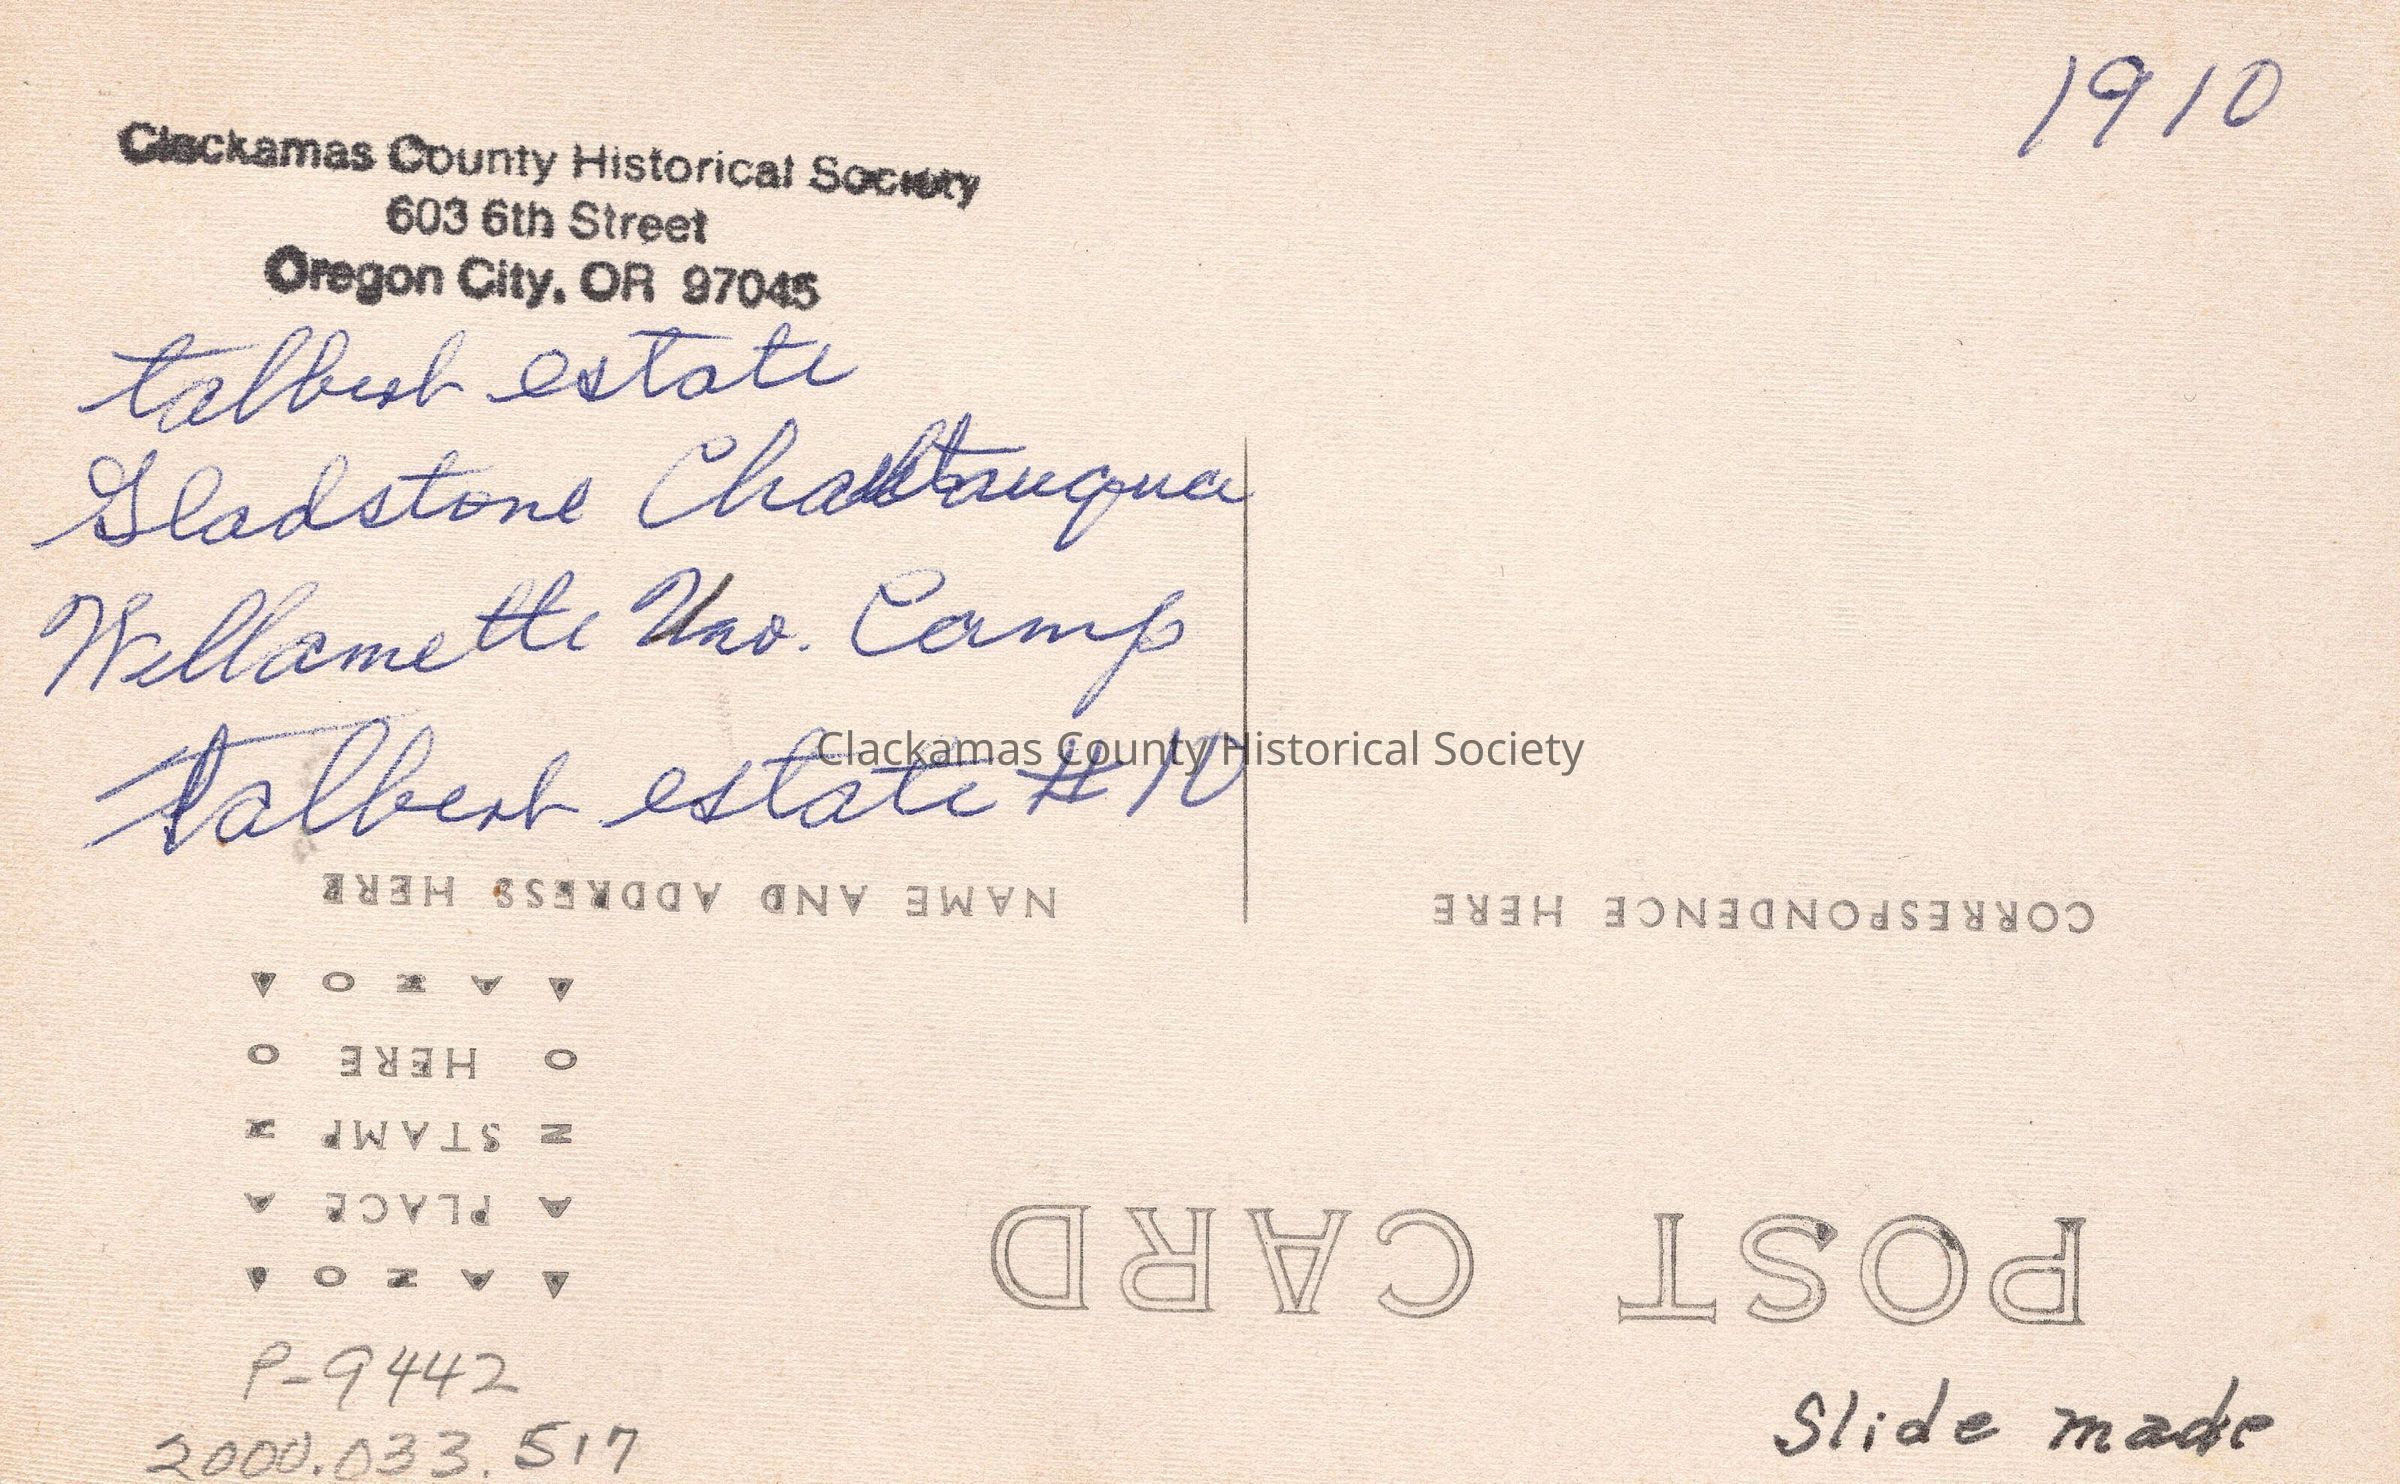 1910
Clackamas County Historical Society
603 6th Street
Oregon City, OR 97045
Talbert estate
Gladstone Chautauqua
Willamette Uno. Camp
Talbert estate #10
Clackamas County Historical Society
NAME AND ADDRESS HERE
CORRESPONDENCE HERE
AZO
HERE
STAMP
PLACE
AZO
POST CARD
P-9442
Slide made
2000.033.517